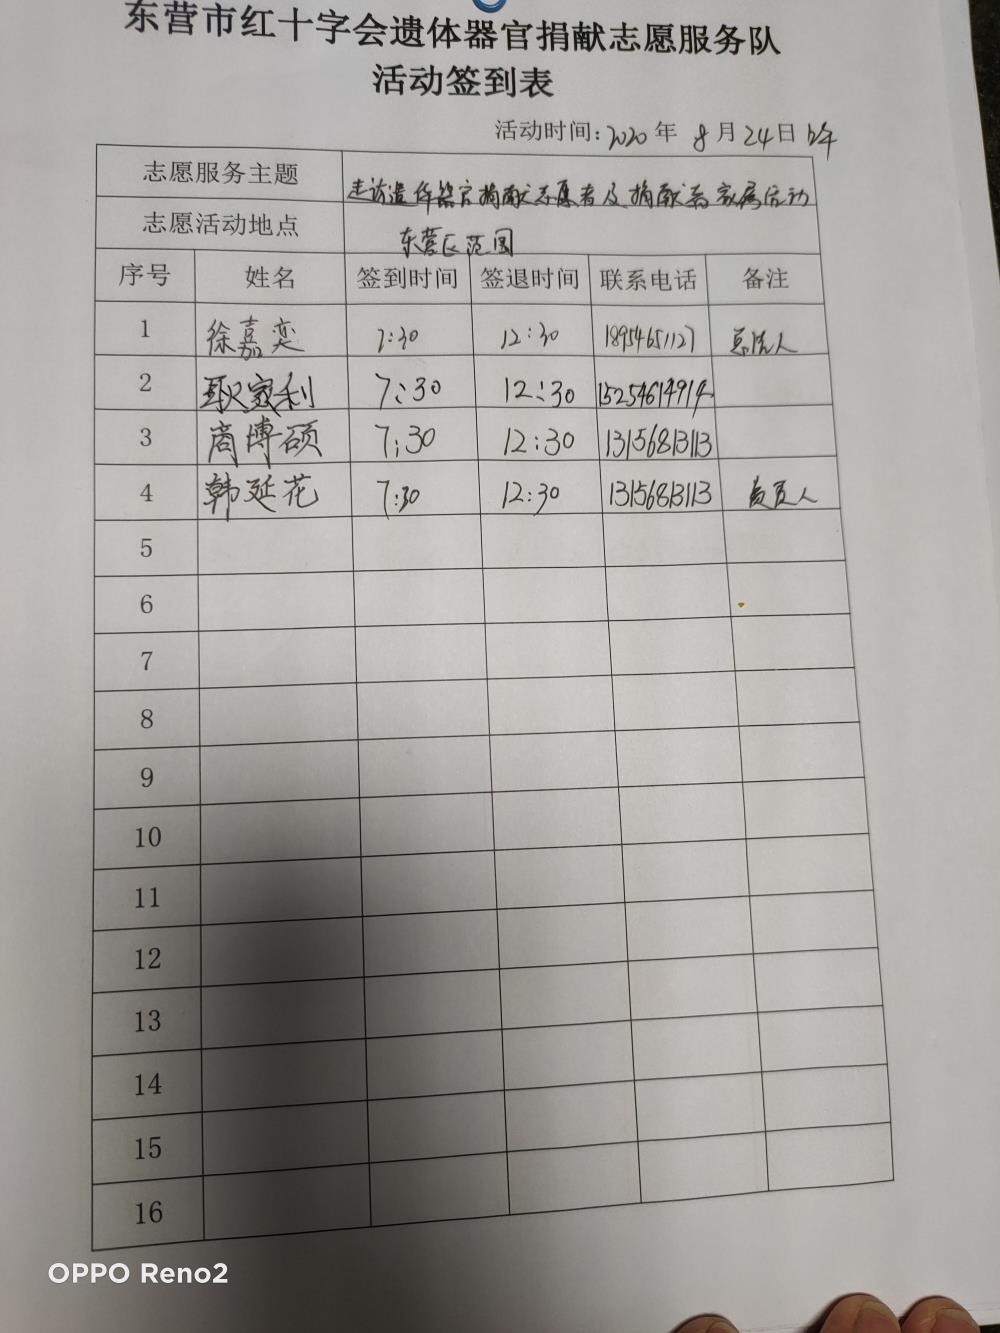 东营市红十字会遗体器官捐献志愿服务队
活动签到表
活动时间:2020年 8月24日
志愿服务主题 走访遗体器官捐献志愿者及捐献者家属活动
志愿活动地点 东营区范围
序号 姓名 签到时间 签退时间 联系电话 备注
1 徐嘉奕 7:30 12:30 18954651127
2 家利 7:30 12:30 15254614914
3 商博硕 7:30 12:30 13156813113
4 韩延花 7:30 12:30 13156813113 负责人
5
6
7
8
9
10
11
12
13
14
15
16
OPPO Reno2